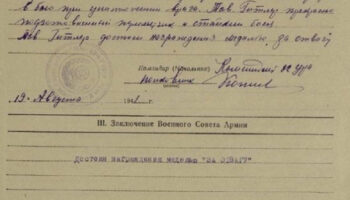 в бою при уничтожении врага. Тов. Гитлер прекрасно
подготовленный пулеметчик и отважный боец.
Тов. Гитлер достоин награждения медалью за отвагу
Командир (Начальник)
полковник
19 Августа 194
III. Заключение Военного Совета Армии
Достоин награждения медалью "ЗА ОТВАГУ"